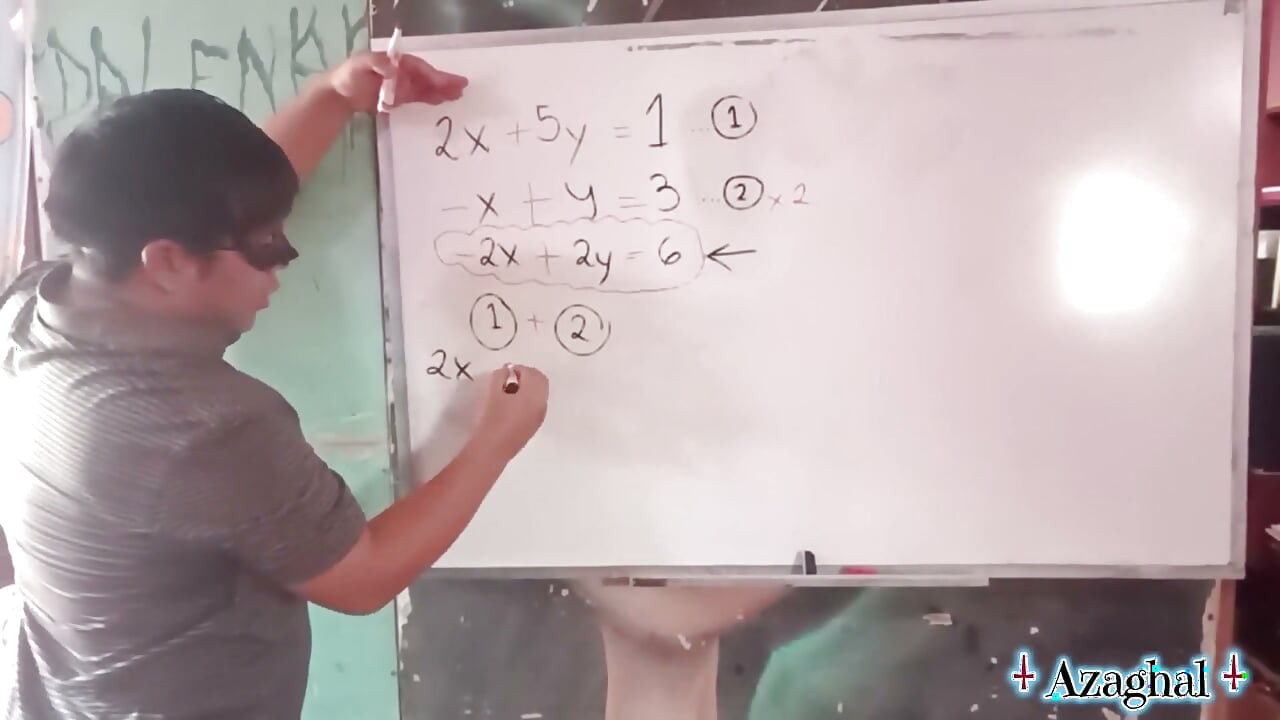 2x + 5y = 1 ... ①
-x + y = 3 ... ② x 2
-2x + 2y = 6 ←
① + ②
2x
Azaghal